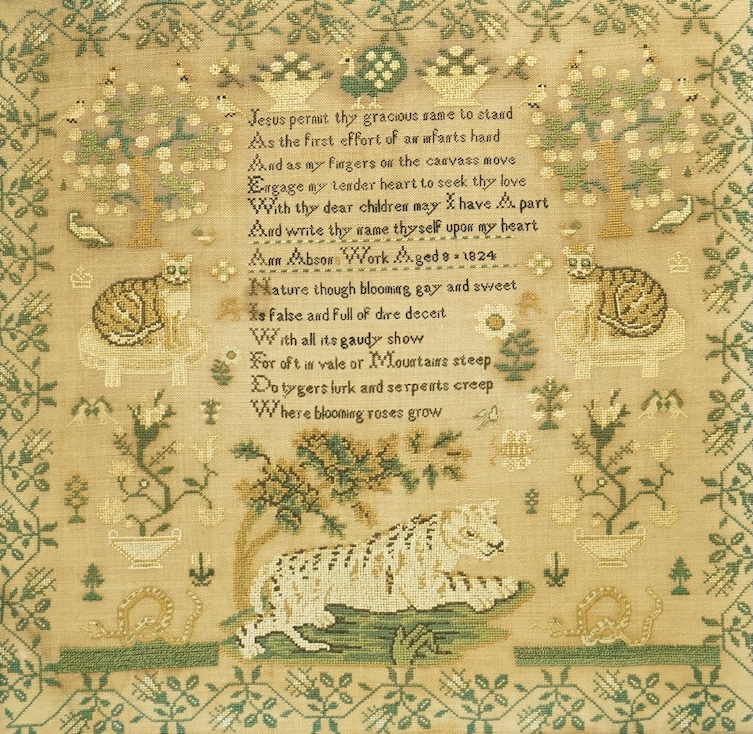 Jesus permit thy gracious name to stand
As the first effort of an infants hand
And as my fingers on the canvass move
Engage my tender heart to seek thy love
With thy dear children may I have A part
And write thy name thyself upon my heart
Ann Abson Work Aged 8 * 1824
Nature though blooming gay and sweet
Is false and full of dire deceit
With all its gaudy show
For oft in vale or Mountains steep
Do tygers lurk and serpents creep
Where blooming roses grow